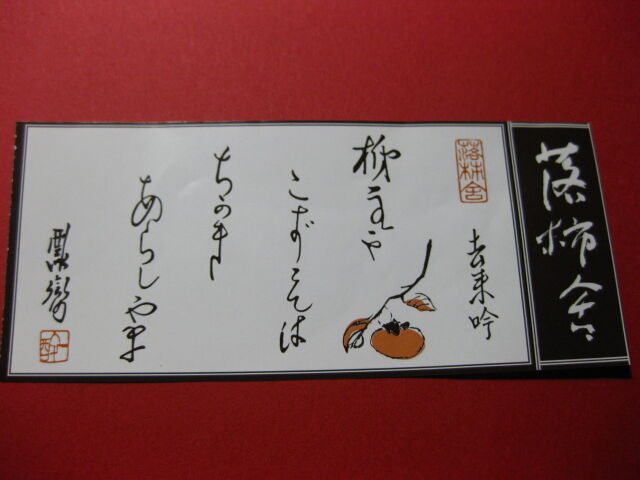 落柿舎
落柿舎
去来吟
柿主や
こずゑは
ちかき
あらしやま